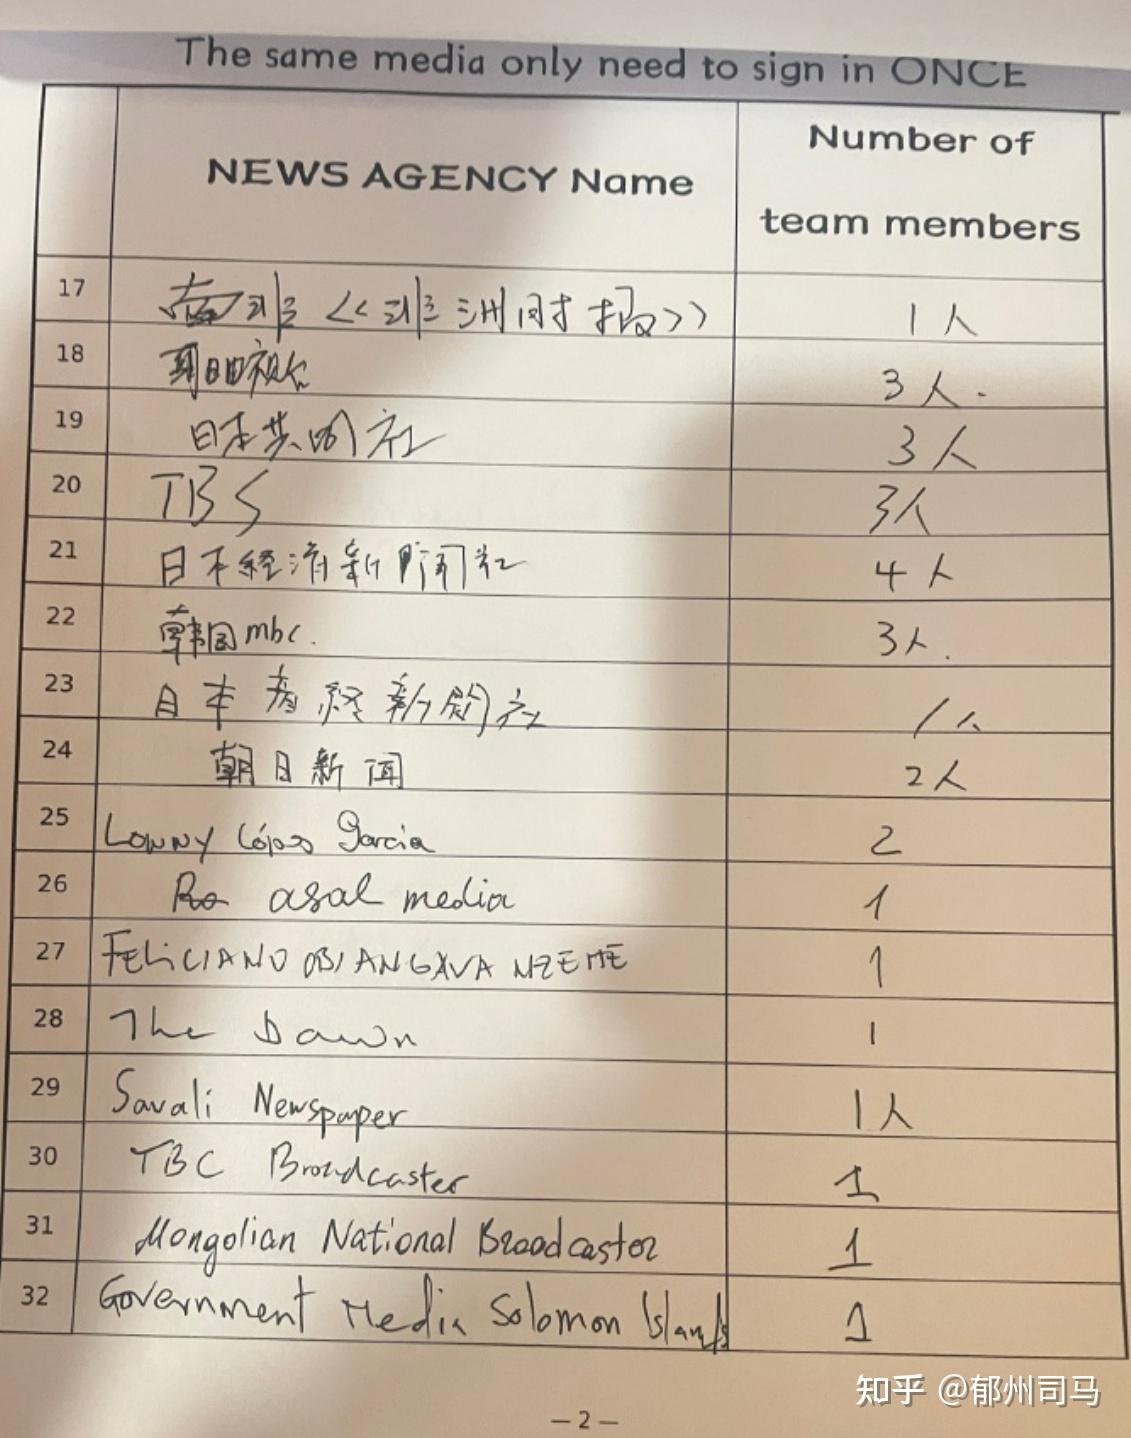 The same media only need to sign in ONCE
NEWS AGENCY Name Number of team members
17 南非《非洲时报》 1人
18 朝日电视台 3人.
19 日本共同社 3人
20 TBS 3人
21 日本経済新聞社 4人
22 韩国mbc. 3人.
23 日本産経新聞社 1人
24 朝日新闻 2人
25 Lonny López García 2
26 asal media 1
27 FELICIANO OBIANG AVA NZEME 1
28 The Dawn 1
29 Savali Newspaper 1人
30 TBC Broadcaster 1
31 Mongolian National Broadcastor 1
32 Government Media Solomon Islands 1
知乎 @郁州司马
—2—